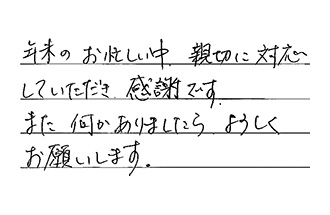 年末の お忙しい中 親切に 対応
していただき 感謝です.
また 何かありましたら よろしく
お願いします.